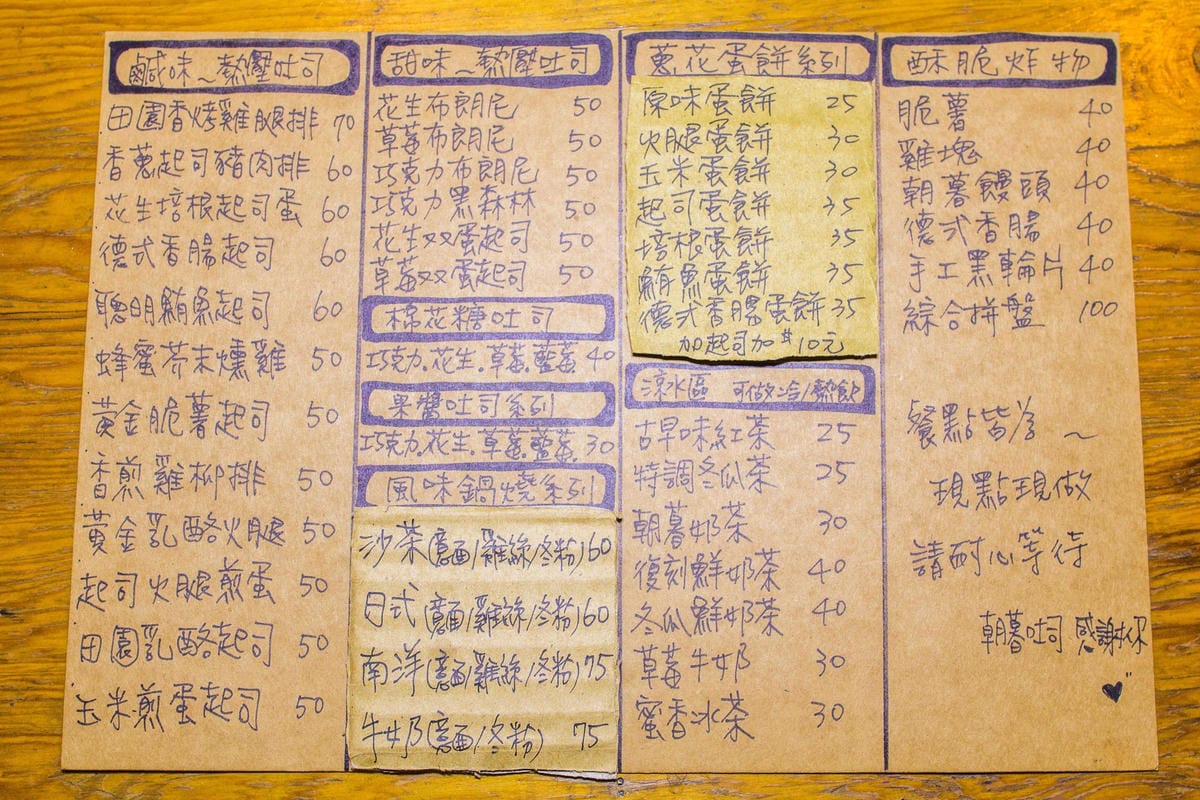 鹹味~熱壓吐司
田園香烤雞腿排 70
香蔥起司豬肉排 60
花生培根起司蛋 60
德式香腸起司 60
聰明鮪魚起司 60
蜂蜜芥末燻雞 50
黃金脆薯起司 50
香煎雞柳排 50
黃金乳酪火腿 50
起司火腿煎蛋 50
田園乳酪起司 50
玉米煎蛋起司 50
甜味~熱壓吐司
花生布朗尼 50
草莓布朗尼 50
巧克力布朗尼 50
巧克力黑森林 50
花生双蛋起司 50
草莓双蛋起司 50
棉花糖吐司
巧克力.花生.草莓.藍莓 40
果醬吐司系列
巧克力.花生.草莓.藍莓. 30
風味鍋燒系列
沙茶(意麵/雞絲/冬粉) 60
日式(意麵/雞絲/冬粉) 60
南洋(意麵/雞絲/冬粉) 75
牛奶(意麵/冬粉) 75
蔥花蛋餅系列
原味蛋餅 25
火腿蛋餅 30
玉米蛋餅 30
起司蛋餅 35
培根蛋餅 35
鮪魚蛋餅 35
德式香腸蛋餅 35
加起司加$10元
涼水區 可做冷/熱飲
古早味紅茶 25
特調冬瓜茶 25
朝暮奶茶 30
復刻鮮奶茶 40
冬瓜鮮奶茶 40
草莓牛奶 30
蜜香冰茶 30
酥脆炸物
脆薯 40
雞塊 40
朝暮饅頭 40
德式香腸 40
手工黑輪片 40
綜合拼盤 100
餐點皆為~
現點現做
請耐心等待
朝暮吐司 感謝你